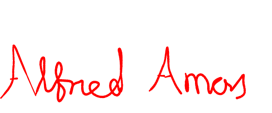 Alfred Amos